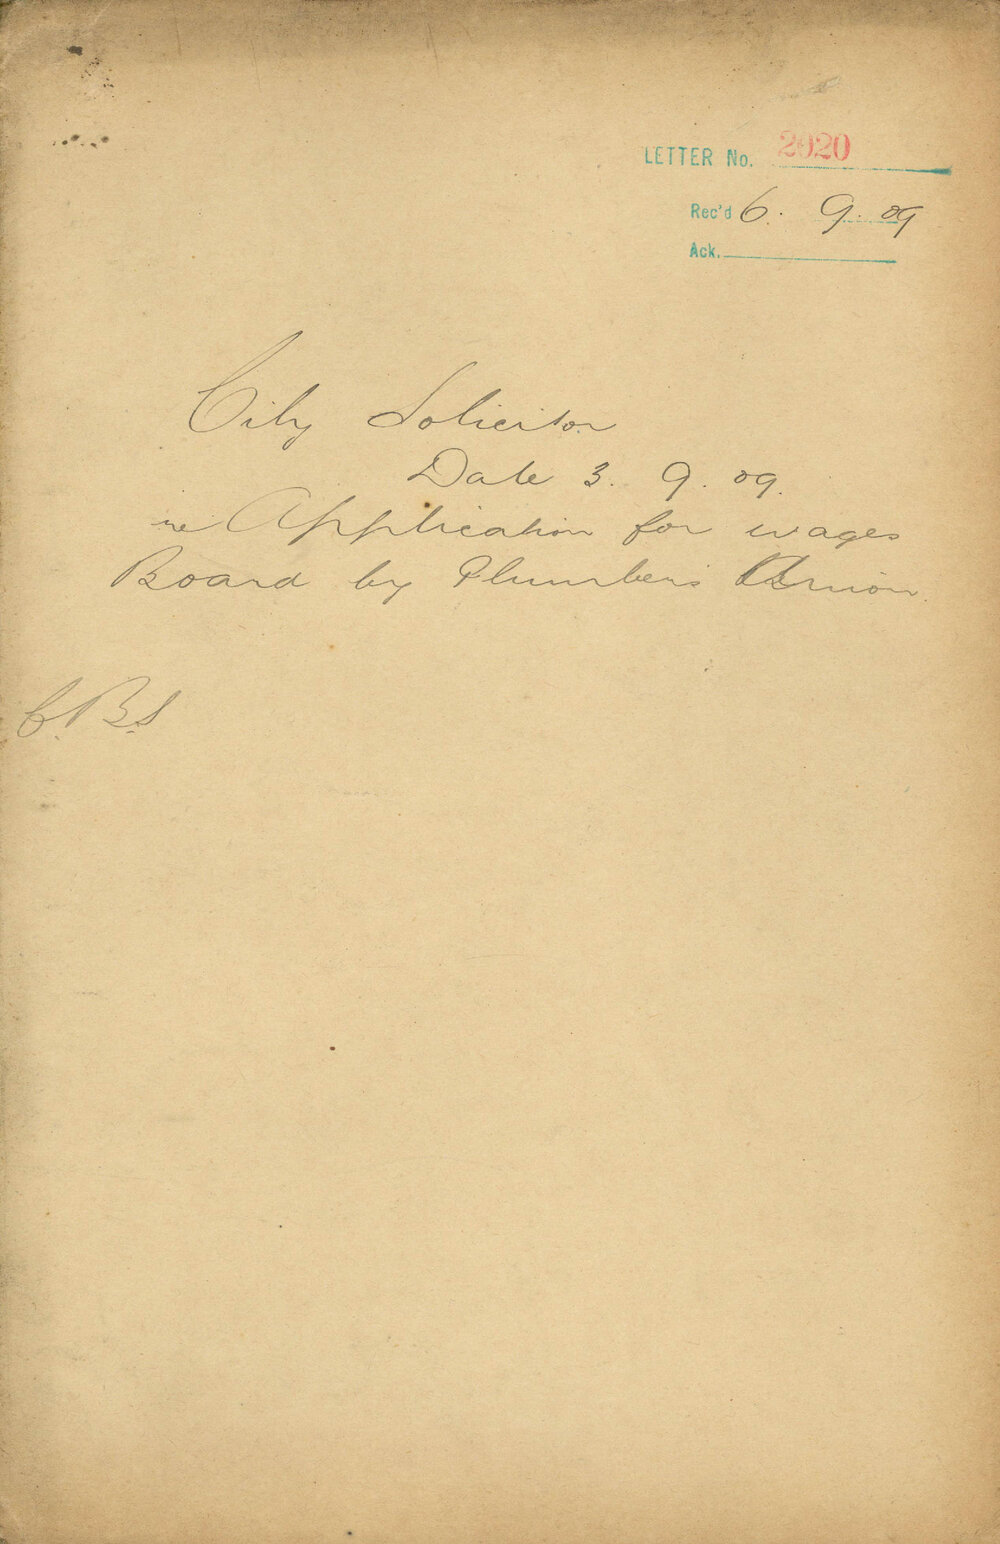 LETTER No. 2020
Rec'd 6. 9. 09
Ack.
City Solicitor
Date 3. 9. 09.
re Application for wages
Board by Plumbers Union.
C.B.S